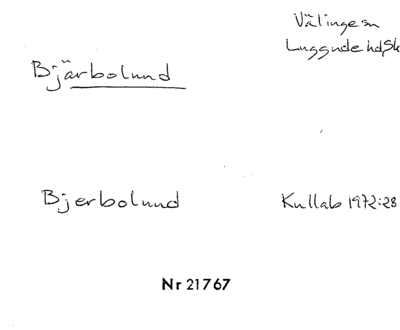 Välinge sn
Luggude hd, Sk
Bjärbolund
Bjerbolund
Kullab 1972:28
Nr 21767